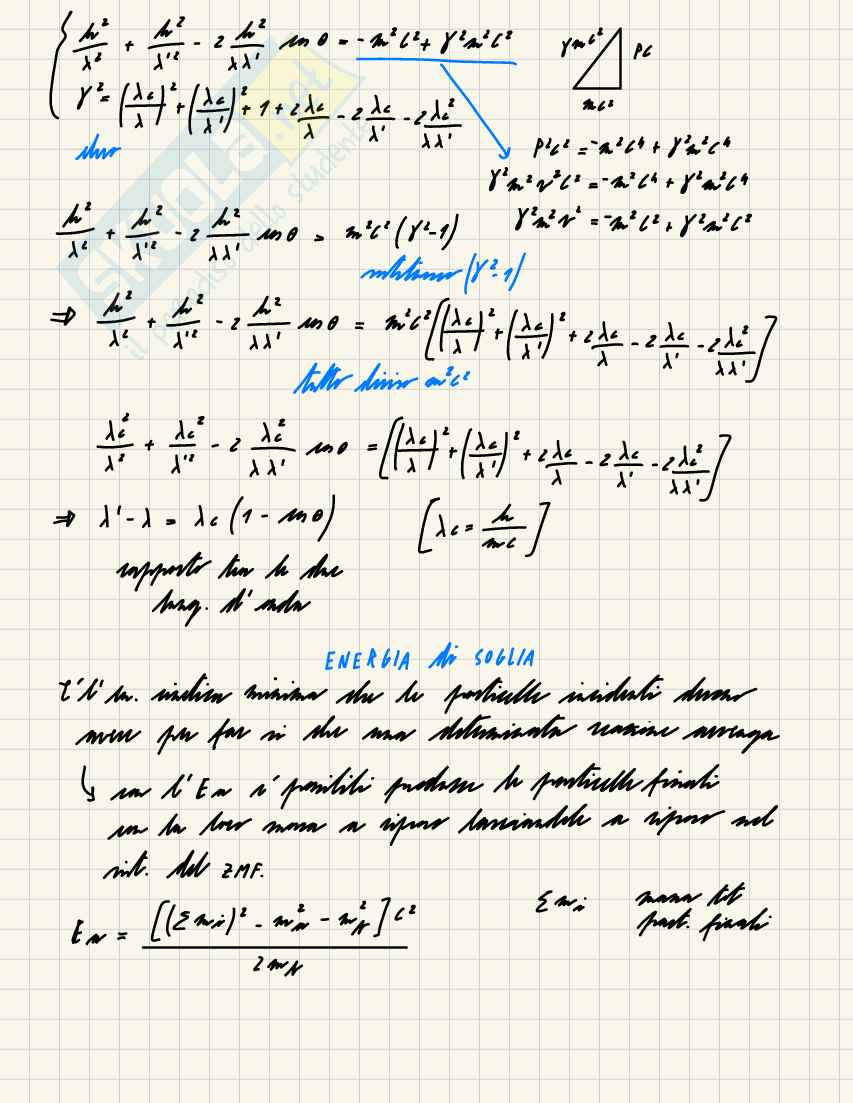 h²/λ² + h²/λ'² - 2 h²/λλ' cos θ = - m²c² + γ²m²c²
γmc² pc mc²
γ² = (λc/λ)² + (λc/λ')² + 1 + 2 λc/λ - 2 λc/λ' - 2 λc²/λλ'
p²c² = -m²c⁴ + γ²m²c⁴
γ²m²v²c² = -m²c⁴ + γ²m²c⁴
γ²m²v² = -m²c² + γ²m²c²
h²/λ² + h²/λ'² - 2 h²/λλ' cos θ = m²c² (γ²-1)
(γ²-1)
⇒ h²/λ² + h²/λ'² - 2 h²/λλ' cos θ = m²c² [(λc/λ)² + (λc/λ')² + 2 λc/λ - 2 λc/λ' - 2 λc²/λλ']
tutto diviso m²c²
λc²/λ² + λc²/λ'² - 2 λc²/λλ' cos θ = [(λc/λ)² + (λc/λ')² + 2 λc/λ - 2 λc/λ' - 2 λc²/λλ']
⇒ λ' - λ = λc (1 - cos θ) [λc = h/mc]
rapporto tra le due
lung. d'onda
ENERGIA di SOGLIA
È l' en. cinetica minima che le particelle incidenti devono
avere per far sì che una determinata reazione avvenga
↳ con l'En è possibile produrre le particelle finali
con la loro massa a riposo lasciandole a riposo nel
sist. del ZMF.
En = [(Σmi)² - m²n - m²N] c² / 2mN
Σmi massa tot
part. finali
SKUOLA.net
il paradiso dello studente